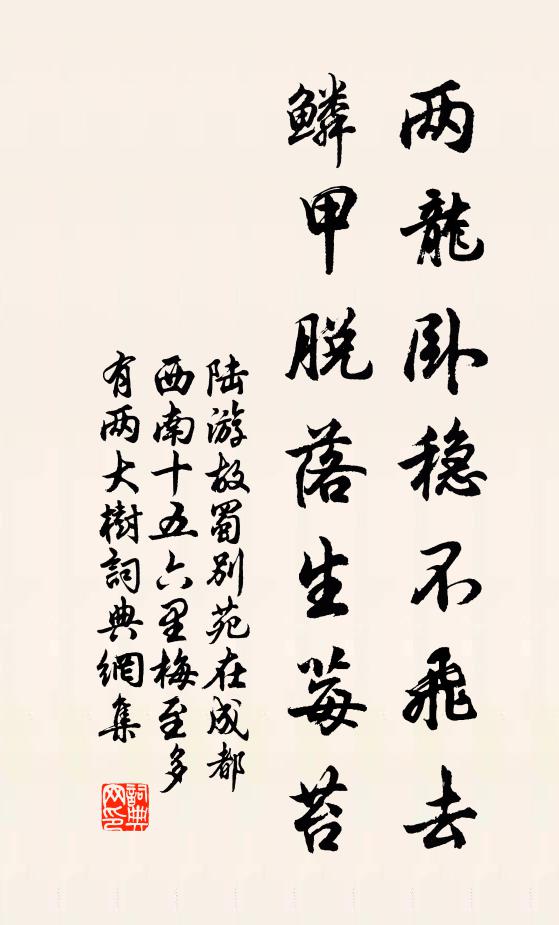 两龍卧稳不飛去
鳞甲脱落生莓苔
陆游故蜀别苑在成都
西南十五六里梅至多
有两大樹詞典網集
詞典
网印